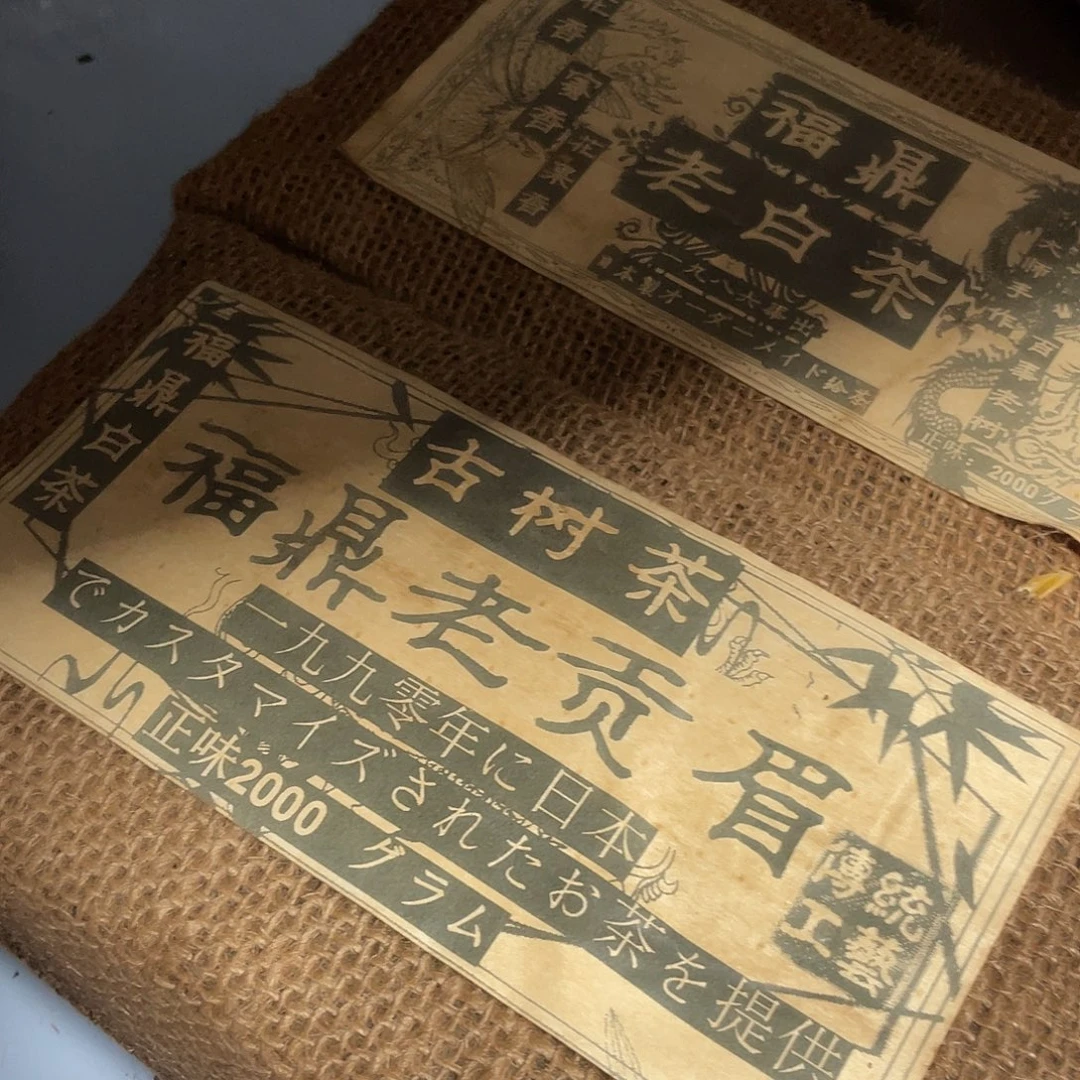 花香
蜜香
花果香
福鼎
老白茶
一九八六事出
本製オーダーメイド給茶
大师手作
百壽老树
正味: 2000グラ
福鼎白茶
古树茶
福鼎老贡眉
一九九零年に日本
でカスタマイズされたお茶を提供
正味2000 グラム
傳統
工藝